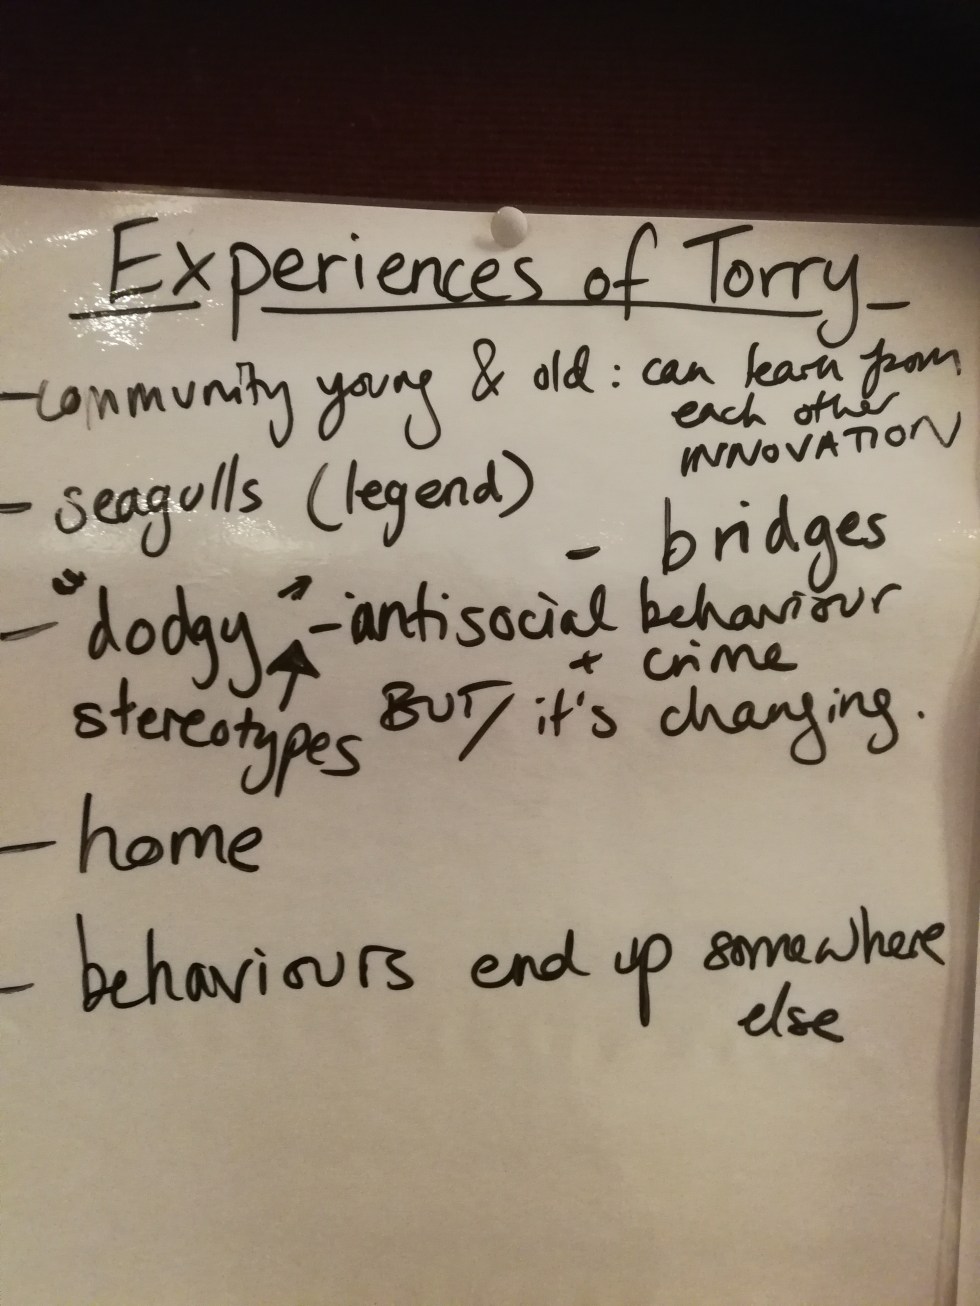 Experiences of Torry
- community young & old : can learn from
each other
INNOVATION
- seagulls (legend)
- bridges
- "dodgy" - antisocial behaviour
+ crime
stereotypes BUT/ it's changing.
- home
- behaviours end up somewhere
else